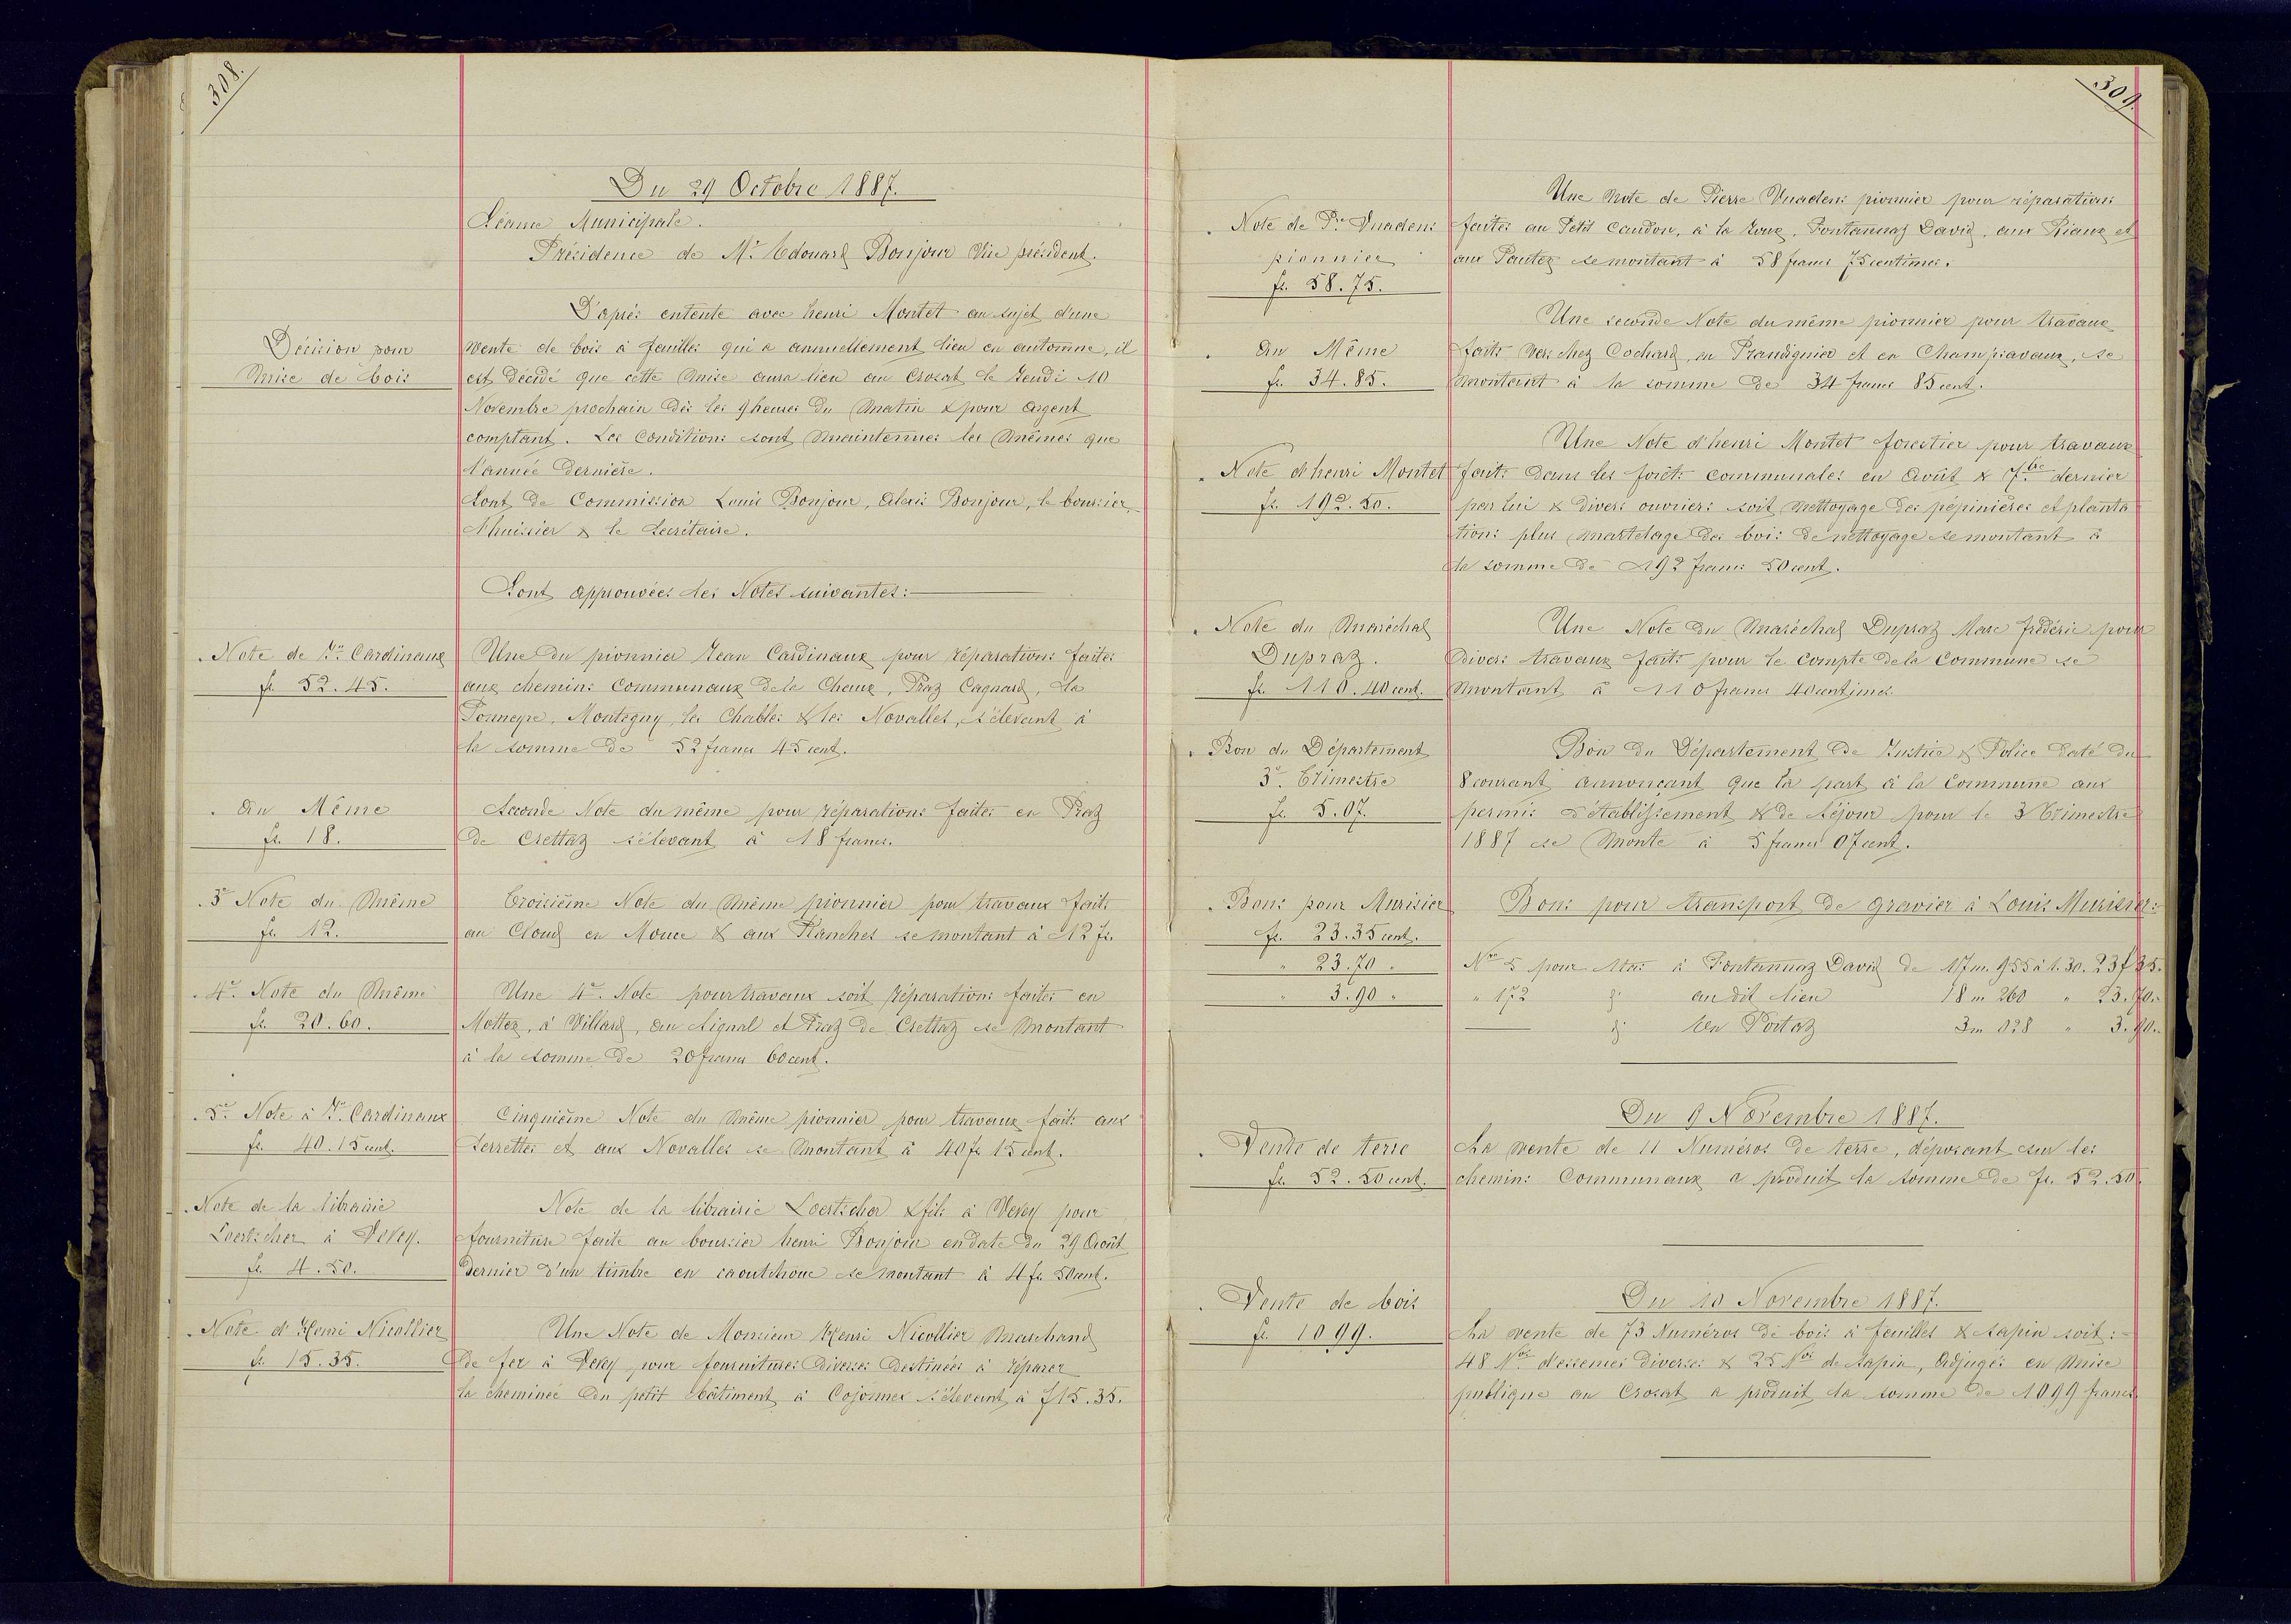 308.
Du 29 Octobre 1887.
Séance Municipale.
Présidence de Mr. Edouard Bonjour Vice président.
Décision pour
Mise de bois
D'après entente avec henri Montet au sujet d'une
vente de bois à feuilles qui a annuellement lieu en automne, il
est décidé que cette Mise aura lieu au Crosat le Jeudi 10
Novembre prochain dès les 9 heures du Matin & pour argent
comptant. Les Conditions sont Maintenues les Mêmes que
l'année dernière.
Sont de Commission Louis Bonjour, Alexis Bonjour, le boursier,
l'huissier & le Secrétaire.
Sont approuvées les Notes suivantes:
. Note de Jn. Cardinaux
fr. 52.45.
Une du pionnier Jean Cardinaux pour réparations faites
aux chemins Communaux de la Chaux, Praz Cagnard, la
Tonneyre, Montegny, les Chables & les Novalles, s'élevant à
la somme de 52 francs 45 cent.
. Au Même
fr. 18.
Seconde Note du même pour réparations faites en Praz
de Crettaz s'élevant à 18 francs.
. 3e Note du Même
fr. 12.
Troisième Note du Même pionnier pour travaux faits
au Cloud en Mouce & aux Planches se montant à 12 fr.
. 4e. Note du Même
fr. 20.60.
Une 4e. Note pour travaux soit réparations faites en
Mottez, à Villard, au Signal et Praz de Crettaz se Montant
à la somme de 20 francs 60 cent.
. 5e. Note à Jn. Cardinaux
fr. 40.15 cent.
Cinquième Note du Même pionnier pour travaux faits aux
Serrettes et aux Novalles se Montant à 40 fr 15 cent.
. Note de la librairie
Loertscher à Vevey.
fr. 4.50.
Note de la librairie Loertscher & fils à Vevey pour
fourniture faite au boursier henri Bonjour en date du 29 Août
dernier d'un timbre en caoutchouc se montant à 4 fr. 50 cent.
. Note d'Henri Nicollier
fr. 15.35.
Une Note de Monsieur Henri Nicollier Marchand
de fer à Vevey pour fournitures diverses destinées à réparer
la cheminée du petit bâtiment à Cojonnex s'élevant à f 15.35.
309.
. Note de Pre Vuadens
pionnier
fr. 58.75.
Une Note de Pierre Vuadens pionnier pour réparations
faites au Petit Caudon, à la Joux, Fontannaz David, aux Riaux et
aux Pautex se montant à 58 francs 75 centimes.
. Au Même
fr. 34.85.
Une seconde Note du même pionnier pour travaux
faits Vers chez Cochard, en Prantignier et en Champsavaux, se
Montant à la somme de 34 francs 85 cent.
. Note d'henri Montet
fr. 192.50.
Une Note d'henri Montet forestier pour travaux
faits dans les forêts communales en Août & 7bre dernier
par lui & divers ouvriers soit nettoyage des pépinières et planta
tions plus Martelage des bois de nettoyage se montant à
la somme de 192 francs 50 cent.
. Note du Maréchal
Dupraz.
fr. 110.40 cent.
Une Note du Maréchal Dupraz Marc frédéric pour
divers travaux faits pour le compte de la Commune se
Montant à 110 francs 40 centimes.
. Bon du Département
3e. Trimestre
fr. 5.07.
Bon du Département de Justice & Police daté du
8 courant annonçant que la part à la Commune aux
permis d'établissement & de séjour pour le 3e Trimestre
1887 se Monte à 5 francs 07 cent.
. Bons pour Murisier
fr. 23.35 cent.
" 23.70 "
" 3.90 "
Bons pour transport de gravier à Louis Murisier:
No 5 pour à Fontannaz David de 17 m. 955 à 1.30. 23 f 35.
" 172 au dit lieu 18 m 260 " 23.70.
en Portaz 3 m 028 " 3.90.
Du 9 Novembre 1887.
. Vente de terre
fr. 52.50 cent.
La vente de 11 Numéros de terre, déposant sur les
chemins Communaux a produit la somme de fr. 52.50.
Du 10 Novembre 1887.
. Vente de bois
fr. 1099.
La vente de 73 Numéros de bois à feuilles & sapin soit:
48 Nos d'essences diverses & 25 Nos de sapin, adjugés en Mise
publique au Crosat a produit la somme de 1099 francs.